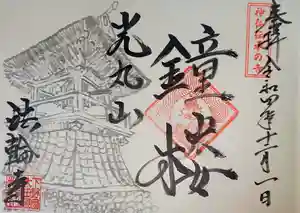 奉拝 令和四年十一月一日
鐘楼
光丸山
法輪寺